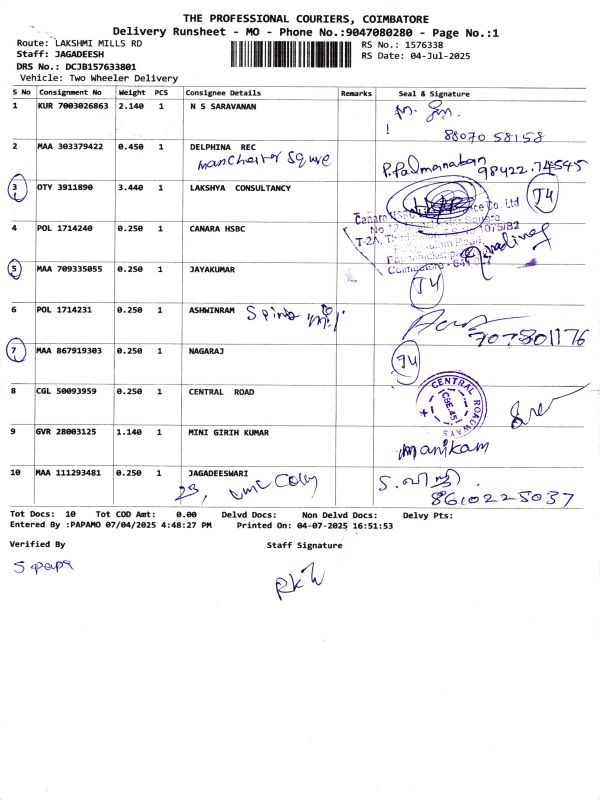 THE PROFESSIONAL COURIERS, COIMBATORE
Delivery Runsheet - MO - Phone No.:9047080280 - Page No.:1
Route: LAKSHMI MILLS RD
Staff: JAGADEESH
DRS No.: DCJB157633801
Vehicle: Two Wheeler Delivery
RS No.: 1576338
RS Date: 04-Jul-2025
S No Consignment No Weight PCS Consignee Details Remarks Seal & Signature
1 KUR 7003026863 2.140 1 N S SARAVANAN
! 88070 58158
2 MAA 303379422 0.450 1 DELPHINA REC
98422 74545
3 OTY 3911890 3.440 1 LAKSHYA CONSULTANCY J4
4 POL 1714240 0.250 1 CANARA HSBC
Canara HSBC Co. Ltd
Coimbatore
5 MAA 709335055 0.250 1 JAYAKUMAR J4
6 POL 1714231 0.250 1 ASHWINRAM
7 MAA 867919303 0.250 1 NAGARAJ J4
8 CGL 50093959 0.250 1 CENTRAL ROAD
CENTRAL ROADWAYS
CBE-45
9 GVR 28003125 1.140 1 MINI GIRIH KUMAR manikam
10 MAA 111293481 0.250 1 JAGADEESWARI
23,
8610225037
Tot Docs: 10 Tot COD Amt: 0.00 Delvd Docs: Non Delvd Docs: Delvy Pts:
Entered By :PAPAMO 07/04/2025 4:48:27 PM Printed On: 04-07-2025 16:51:53
Verified By Staff Signature